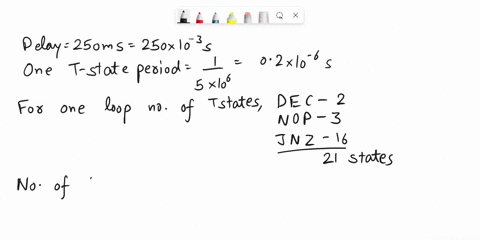 Delay = 250ms = 250×10⁻³ s
One T-state period = 1/5×10⁶ = 0.2×10⁻⁶ s
For one loop no. of Tstates, DEC - 2
NOP - 3
JNZ - 16
21 states
No. of